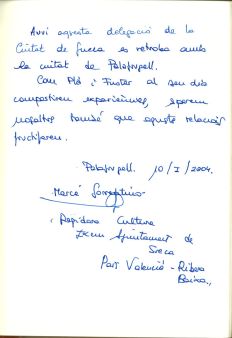 Avui aquesta delegació de la
Ciutat de Sueca es retroba amb
la ciutat de Palafrugell.
Com Pla i Fuster al seu dia
compartiren experiències, esperem
nosaltres també que aquesta relació
fructifere.
Palafrugell, 10/I/2004.
Mercé
Regidora Cultura
Excm Ajuntament de
Sueca
País Valencià - Ribera
Baixa.